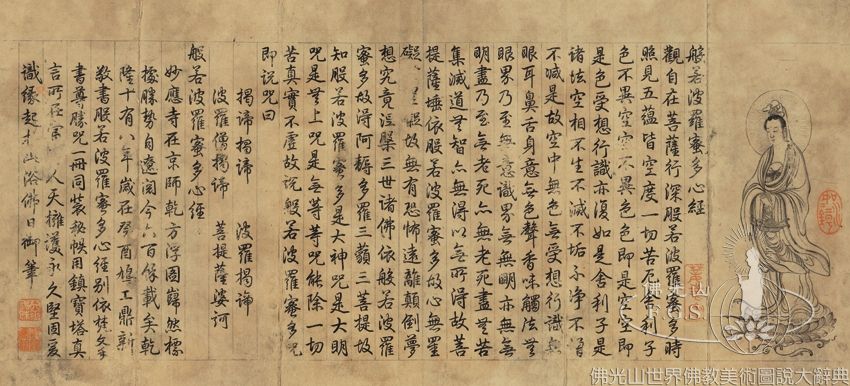 般若波羅蜜多心經
觀自在菩薩行深般若波羅蜜多時
照見五蘊皆空度一切苦厄舍利子
色不異空空不異色色即是空空即
是色受想行識亦復如是舍利子是
諸法空相不生不滅不垢不淨不增
不減是故空中無色無受想行識無
眼耳鼻舌身意無色聲香味觸法無
眼界乃至無意識界無無明亦無無
明盡乃至無老死亦無老死盡無苦
集滅道無智亦無得以無所得故菩
提薩埵依般若波羅蜜多故心無罣
礙故無有恐怖遠離顛倒夢
想究竟涅槃三世諸佛依般若波羅
蜜多故得阿耨多羅三藐三菩提故
知般若波羅蜜多是大神咒是大明
咒是無上咒是無等等咒能除一切
苦真實不虛故說般若波羅蜜多咒
即說咒曰
揭諦揭諦 波羅揭諦
波羅僧揭諦 菩提薩婆訶
般若波羅蜜多心經
妙應寺在京師乾方浮圖巋然標
據勝勢自遼閱今六百餘載矣乾
隆十有八年歲在癸酉鳩工鼎新
敬書般若波羅蜜多心經別依梵文
書尊勝咒冊同裝秘帙用鎮寶塔真
言所在人天擁護永久堅固爰
識緣起浴佛日御筆
佛光山
FGS
佛光山世界佛教美術圖說大辭典